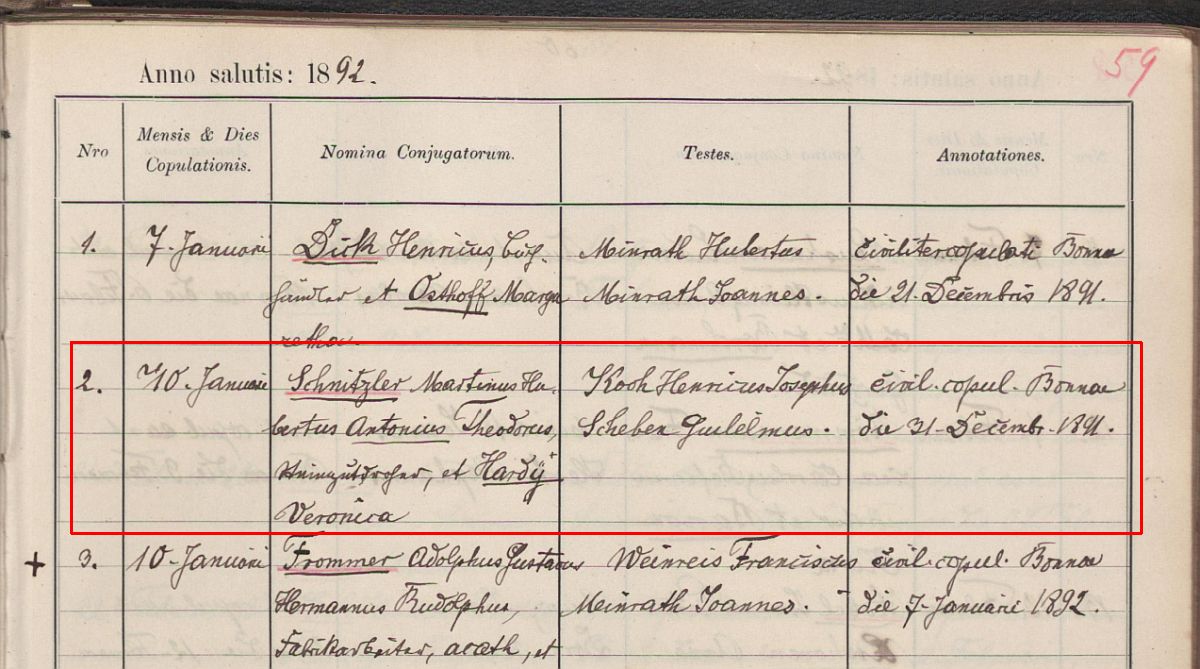 59
Anno salutis: 1892.
Nro
Mensis & Dies
Copulationis.
Nomina Conjugatorum.
Testes.
Annotationes.
1. 7. Januarii Dick Henricus, Buch- Minrath Hubertus Civiliter copulati Bonnae
händler et Osthoff Marga Minrath Joannes. die 21. Decembris 1891.
retha.
2. 10. Januarii Schnitzler Martinus Hu- Koch Henricus Josephus civil. copul. Bonnae
bertus Antonius Theodorus, Scheben Guilelmus. die 31. Decembr. 1891.
et Hardÿ
Veronica
+ 3. 10. Januarii Frommer Adolphus Gustavus Weinreis Franciscus civil. copul. Bonnae
Hermannus Rudolphus, Meinrath Joannes. die 7. Januarii 1892.
Fabrikarbeiter, acath, et